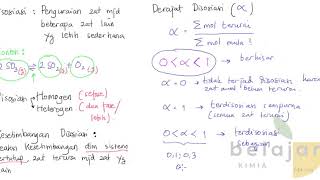 isosiasi : Penguraian zat mjd
beberapa zat lain
yg lebih sederhana
2SO3(g) ⇌ 2SO2(g) + O2(g)
Disosiasi Homogen (sefase)
Heterogen (dua fase/lebih)
Kesetimbangan Disosiasi :
reaksi kesetimbangan dlm sistem
tertutup zat terurai mjd zat yg
lain
Derajat Disosiasi (α)
α = Σmol terurai
Σmol mula²
0 < α < 1 → berkisar
α = 0 → tidak terjadi disosiasi
α = 1 → terdisosiasi sempurna
(semua zat terurai)
0 < α < 1 → terdisosiasi
sebagian
0,1 ; 0,3
belajar
KIMIA